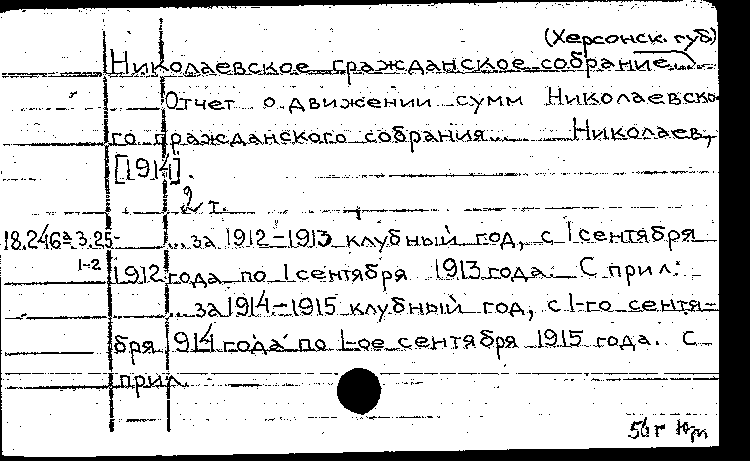 (Херсонск. губ.)
Николаевское гражданское собрание...
Отчет о движении сумм Николаевско-
го гражданского собрания... Николаев,
[1914].
2 т.
18.246а.3.25- ...за 1912-1913 клубный год, с 1 сентября
1-2 1912 года по 1 сентября 1913 года. С прил.
...за 1914-1915 клубный год, с 1-го сентя-
бря 914 года по 1-ое сентября 1915 года. С
прил.
56г